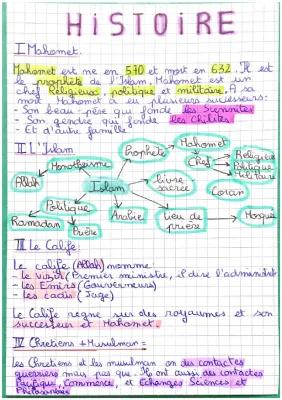 HiSTOiRE
I Mahomet.
Mahomet est né en 570 et mort en 632. Il est
le prophète de l'Islam, Mahomet est un
chef Religieux, politique et militaire. A sa
mort Mahomet à eu plusieurs successeurs:
- Son beau-père qui fonde les Sunnites
- Son gendre qui fonde les Chiites
- Et d'autre famille
II L'Islam
Mahomet
Prophète
Chef
Religieux
Politique
Militaire
Monothéisme
Allah
Islam
livre
sacrée
Coran
Politique
Ramadan
Arabie
lieu de
prière
Mosquée
III Le Calife:
Le calife (Allah) nomme:
- Le vizir (Premier ministre, il dire l'administrat
- Les Emirs (Gouverneurs)
- Les cadis (Juge)
Le Calife règne sur des royaumes et son
successeur et Mahomet.
IV Chrétiens + Musulman:
Les Chrétiens et les musulman on des contactes
guerriers mais pas que. Ils ont aussi des contactes
Pacifique, Commerce, et Echanges Sciences et
Philosophie